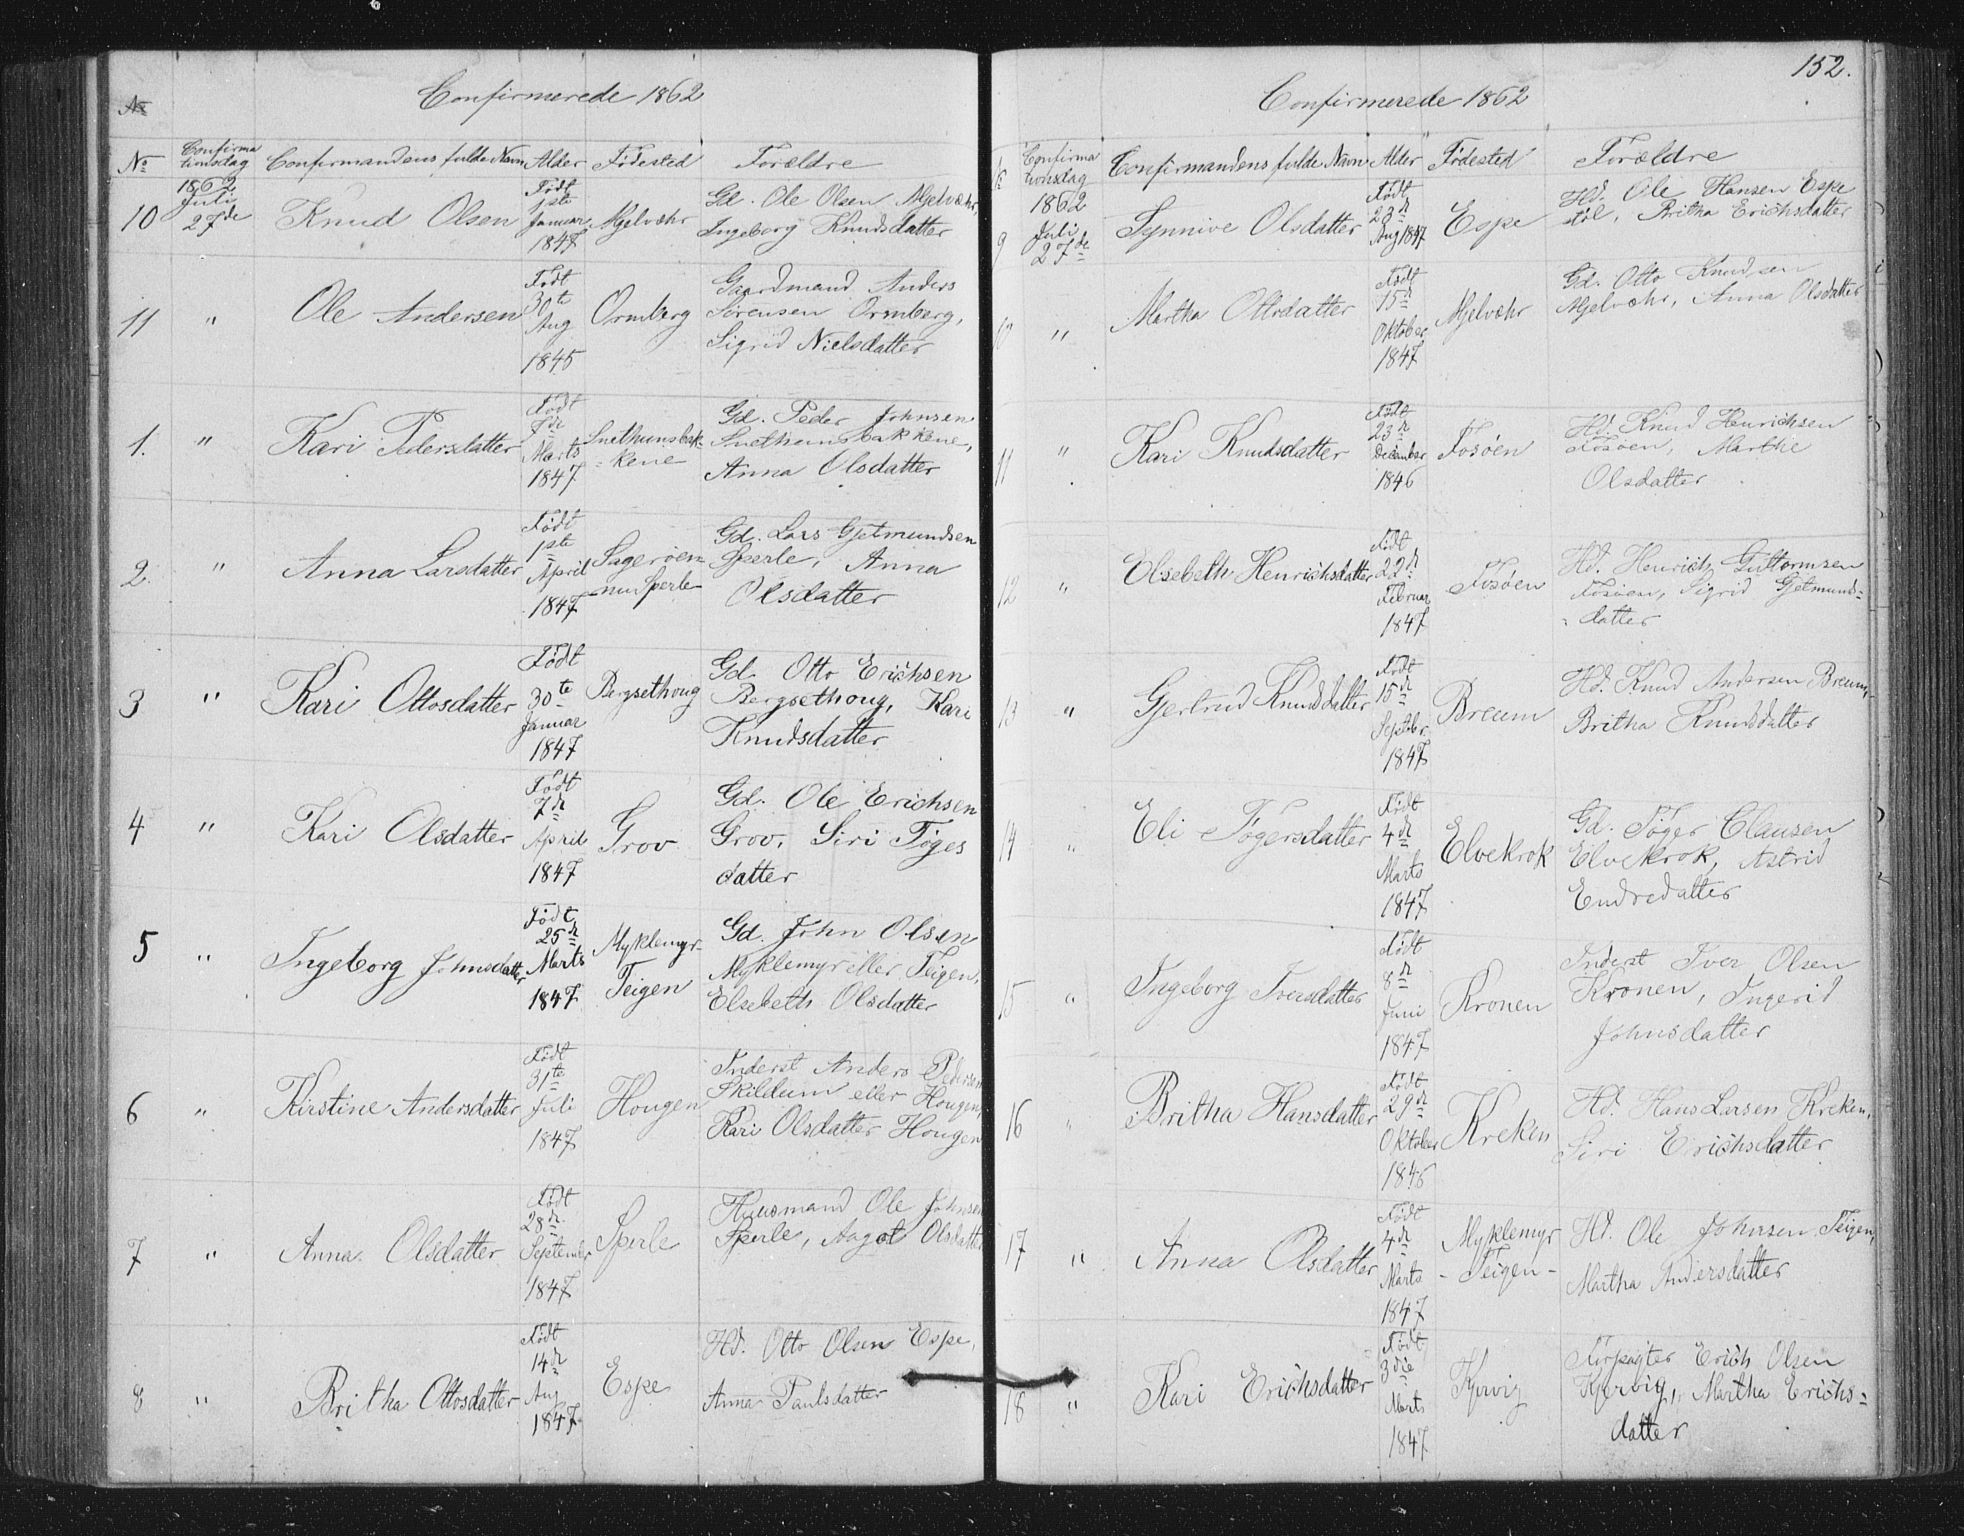 Confirmerede 1862
No
No Confirma Confirmandens fulde Navn Alder Fødested Forældre
tionsdag
1862 Født
Juli 1ste Gd. Ole Olsen Mjelvæhr,
10 27de Knud Olsen Januar Mjelvæhr Ingeborg Knudsdatter
1847
Født Gaardmand Anders
11 " Ole Andersen 30te Ormberg Sørensen Ormberg,
Aug Sigrid Nielsdatter
1845
Født Gd. Peder Johnsen
1. " Kari Pedersdatter 7de Snethunsbak Snethunsbakkene,
Marts -kene Anna Olsdatter
1847
Født Gd. Lars Gjetmundsen
2. " Anna Larsdatter 1ste Sperle, Anna
April Olsdatter
1847
Født Gd. Otto Erichsen
3 " Kari Ottosdatter 30te Bergsethoug Bergsethoug, Kari
Januar Knudsdatter
1847
Født Gd. Ole Erichsen
4 " Kari Olsdatter 7de Grov Grov, Siri Tøges
April datter
1847
Født Gd. John Olsen
5 " Ingeborg Johnsdatter 25de Myklemyr- Myklemyr eller Teigen,
Marts Teigen Elsebeth Olsdatter
1847
Født Inderst Anders Pedersen
6 " Kirstine Andersdatter 31te Hougen Skildum eller Hougen,
Juli Kari Olsdatter Hougen
1847
Født Huusmand Ole Johnsen
7 " Anna Olsdatter 28de Sperle Sperle, Aagot Olsdatter
September
1847
Født Hd. Otto Olsen Espe,
8 " Britha Ottosdatter 14de Espe Anna Paulsdatter
Aug
1847
152.
Confirmerede 1862
Confirma Confirmandens fulde Navn Alder Fødested Forældre
tionsdag
1862 Født Hd. Ole Hansen Espe
9 Juli Synnive Olsdatter 23de Espe Britha Erichsdatter
27de Aug 1847
Født Gd. Otto Knudsen
10 " Martha Ottosdatter 15de Mjelvæhr Mjelvæhr, Anna Olsdatter
Oktober
1847
Født Hd. Knud Henrichsen
11 " Kari Knudsdatter 23de Fosøen Fosøen, Marthe
December Olsdatter
1846
Født Hd. Henrich Guttormsen
12 " Elsebeth Henrichsdatter 22de Fosøen Fosøen, Sigrid Gjetmunds-
Februar datter
1847
Født Hd. Knud Andersen Breum,
13 " Gjertrud Knudsdatter 15de Breum Britha Knudsdatter
Septbr
1847
Født Gd. Tøger Clausen
14 " Eli Tøgersdatter 4de Elvekrok Elvekrok, Astrid
Marts Endredatter
1847
Født Inderst Iver Olsen
15 " Ingeborg Iversdatter 8de Kronen Kronen, Ingerid
Juni Johnsdatter
1847
Født Hd. Hans Larsen Kreken,
16 " Britha Hansdatter 29de Kreken Siri Erichsdatter
Oktober
1846
Født Hd. Ole Johnsen Teigen,
17 " Anna Olsdatter 4de Myklemyr Martha Andersdatter
Marts -Teigen-
1847
Født Forpagter Erich Olsen
18 " Kari Erichsdatter 3die Kjervig Kjervig, Martha Erichs-
Marts datter
1847